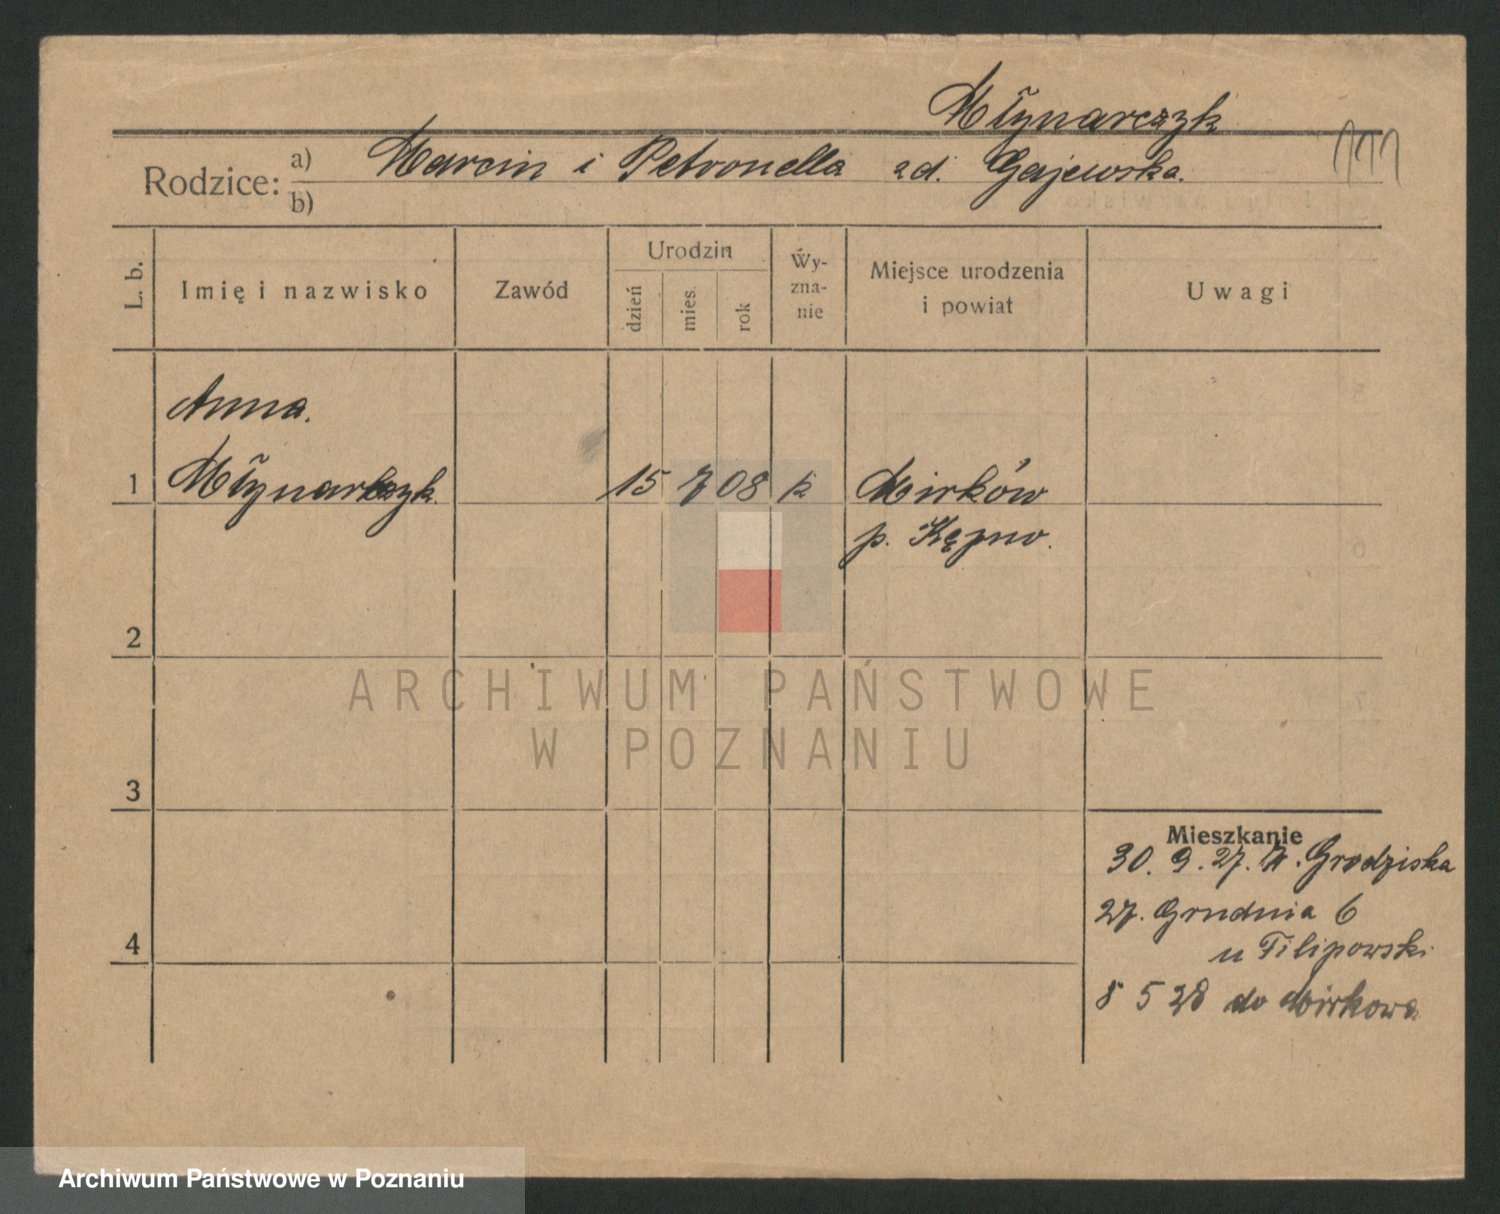 Młynarczyk
Rodzice: a) Marcin i Petronella zd. Gajewska.
b)
L. b.
Imię i nazwisko
Zawód
Urodzin
dzień
mies
rok
Wy-
zna-
nie
Miejsce urodzenia
i powiat
Uwagi
Anna.
1 Młynarczyk 15 7 08 k Mirków
p. Kępno.
2
ARCHIWUM PAŃSTWOWE
W POZNANIU
3
Mieszkanie
30. 9. 27. Grodziska
4
27. Grudnia 6
u Filipowski
8 5 28 do Mirkowa
Archiwum Państwowe w Poznaniu